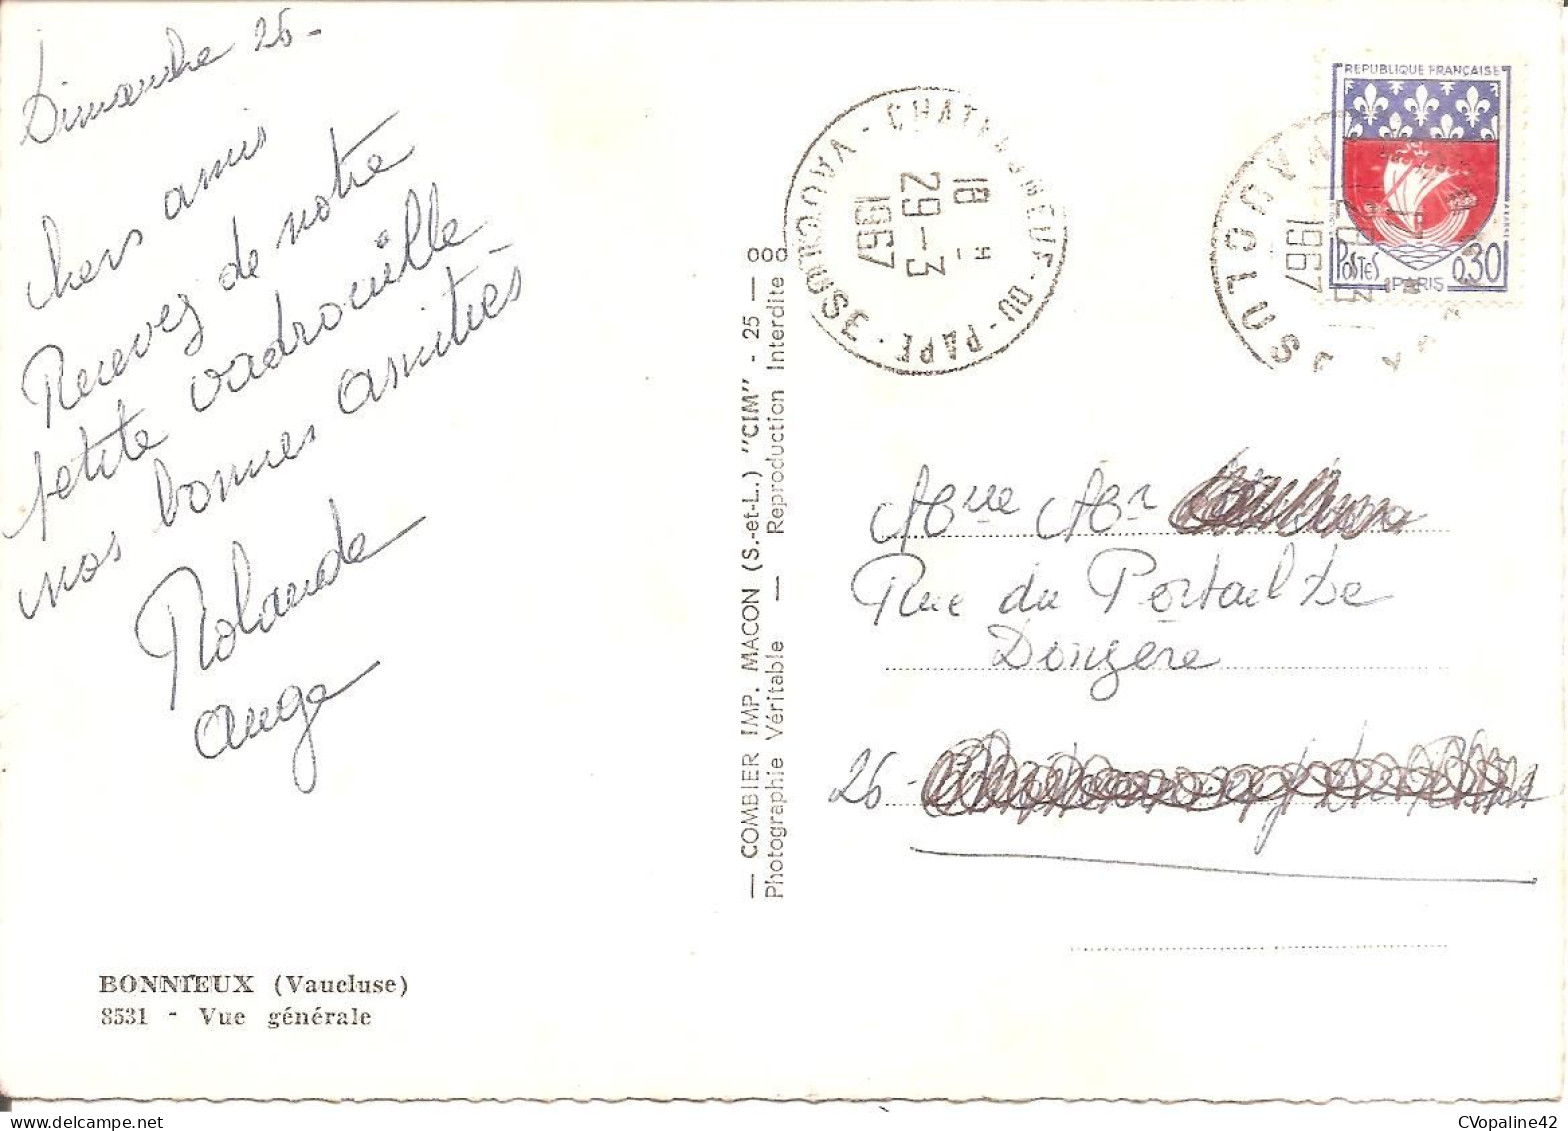 Dimanche 26 -
Chers amis
Recevez de notre
petite vadrouille
nos bonnes amitiés
Rolande
Ange
BONNIEUX (Vaucluse)
8531 - Vue générale
— COMBIER IMP. MACON (S.-et-L.) "CIM" - 25 — 000
Photographie Véritable — Reproduction Interdite
CHATEAUNEUF - DU - PAPE - VAUCLUSE
18 H
29 - 3
1967
REPUBLIQUE FRANÇAISE
POSTES
0,30
PARIS
VAUCLUSE
1967
Mme Mr
Rue du Portail De
Donzère
26 -
CVopaline42